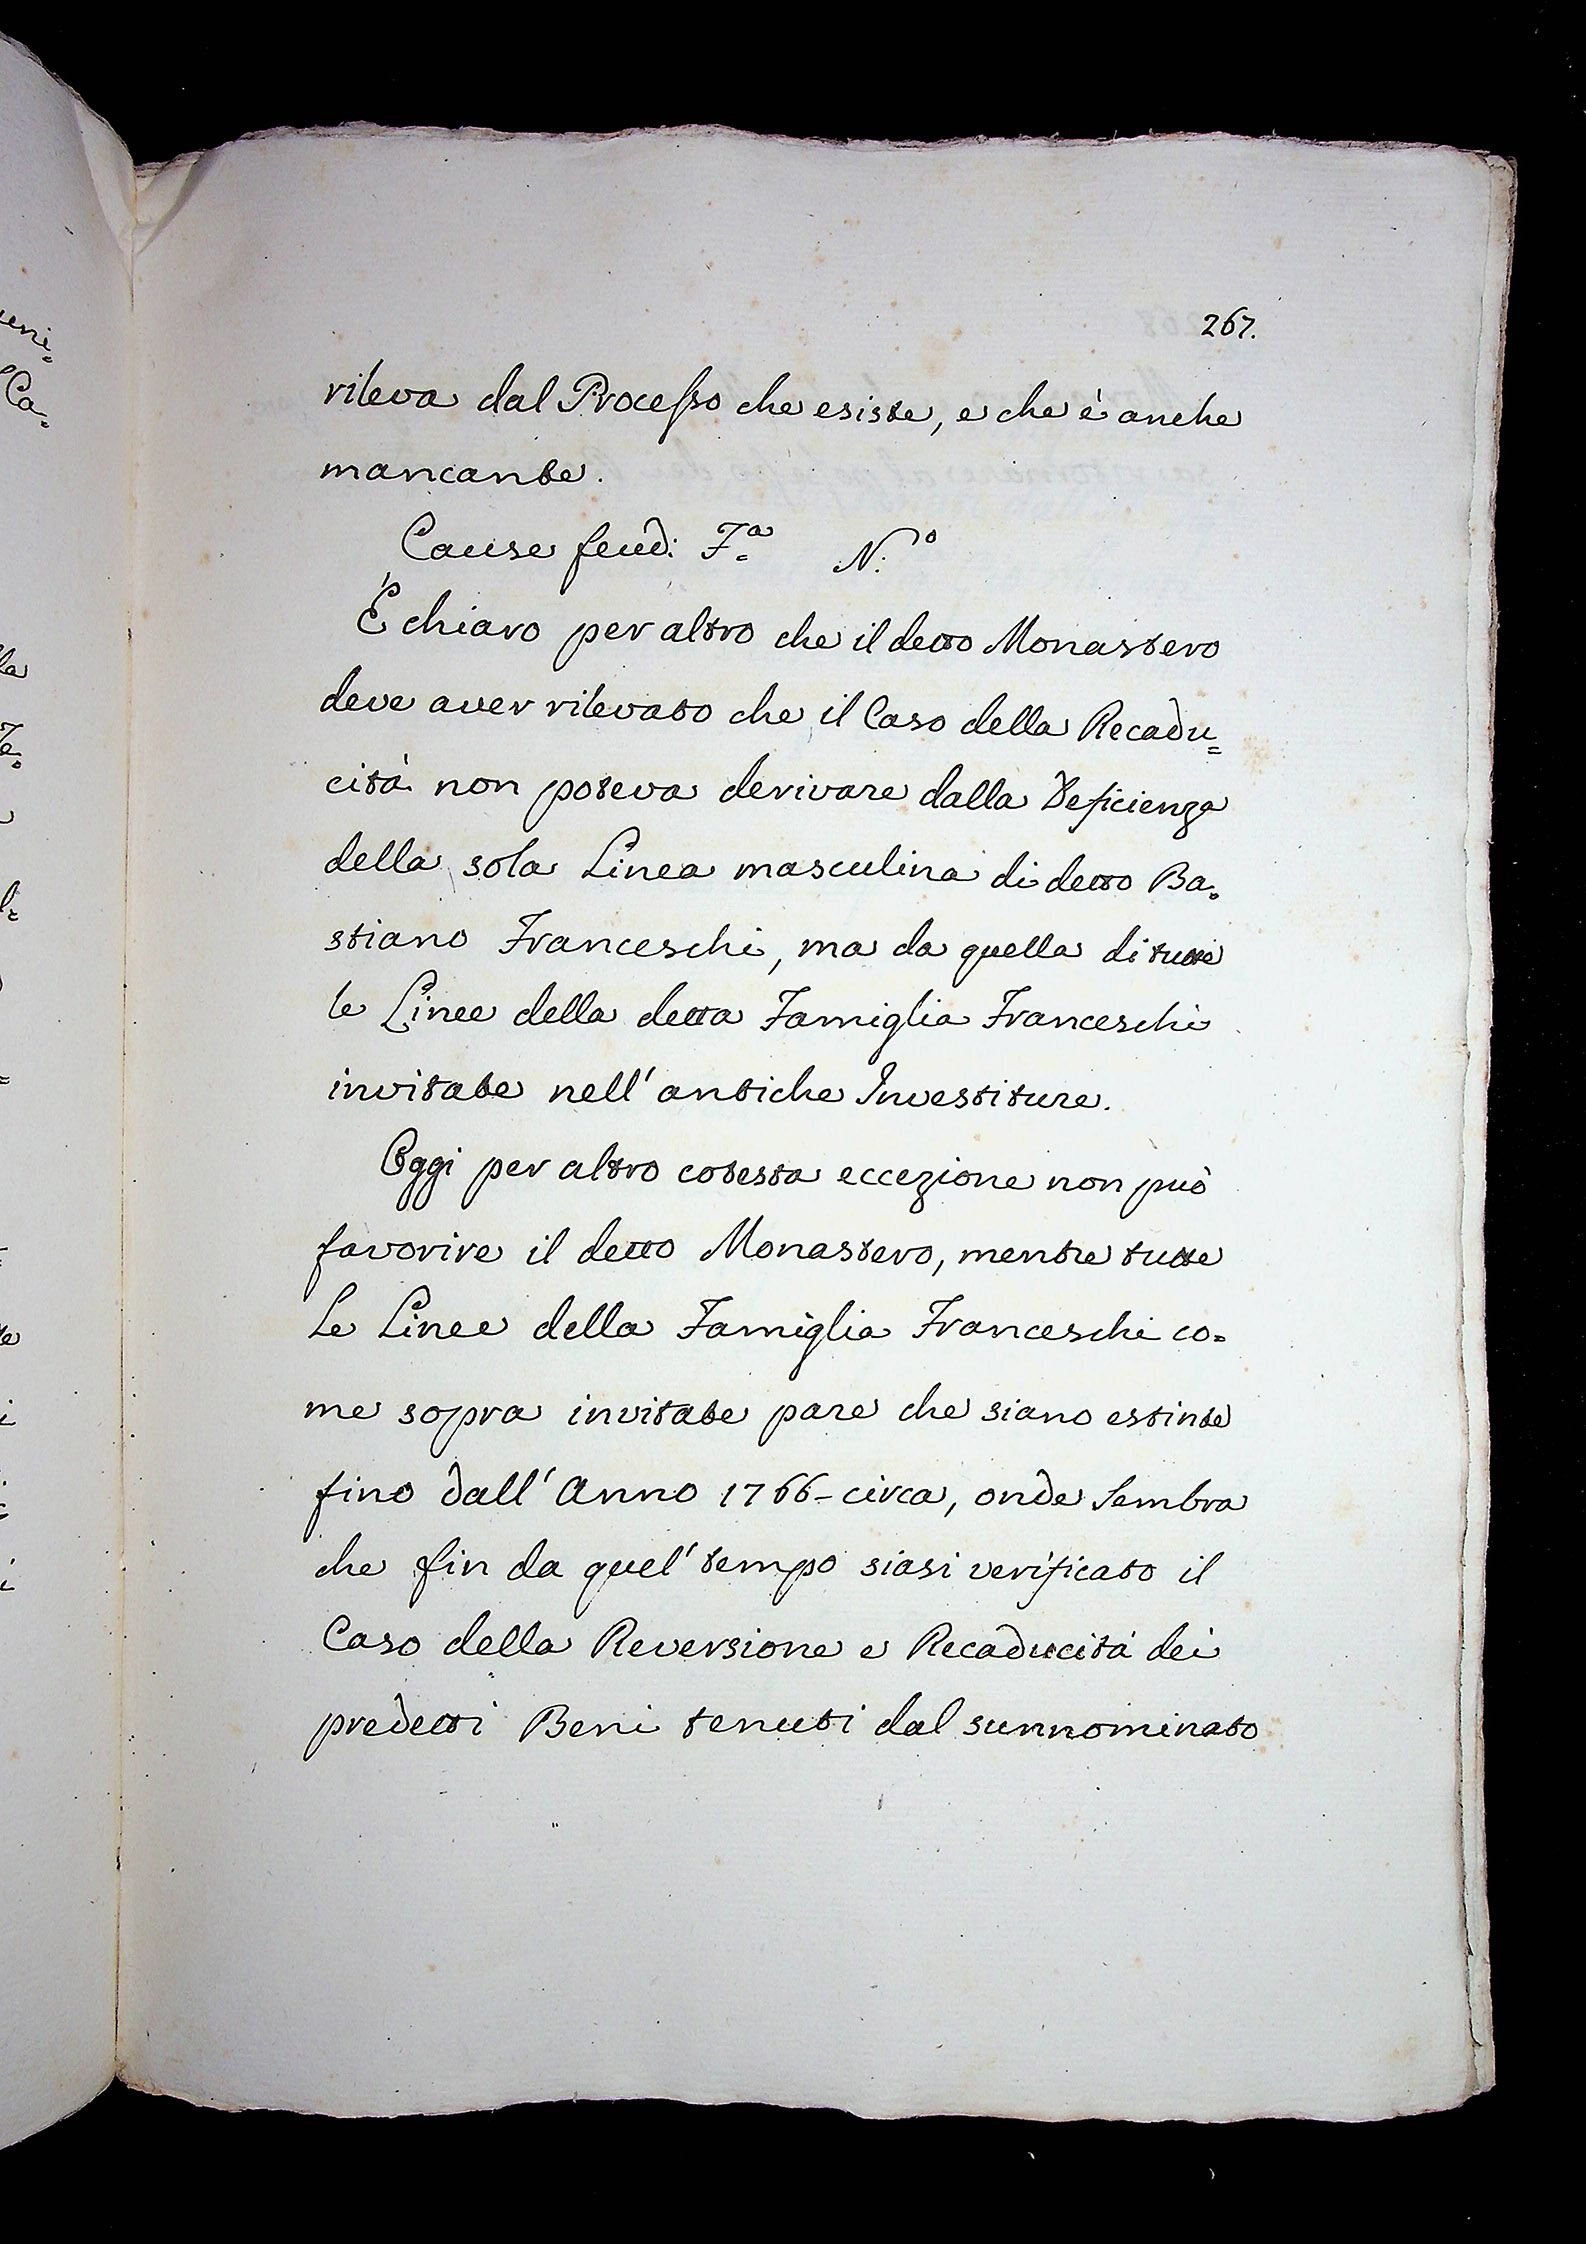 267.
rileva dal Processo che esiste, e che è anche
mancante.
Cause feud: F.a N.o
È chiaro per altro che il detto Monastero
deve aver rilevato che il Caso della Recadu=
cità non poteva derivare dalla Deficienza
della sola Linea masculina di detto Ba=
stiano Franceschi, ma da quella di tutte
le Linee della detta Famiglia Franceschi
invitate nell' antiche Investiture.
Oggi per altro cotesta eccezione non può
favorire il detto Monastero, mentre tutte
Le Linee della Famiglia Franceschi co=
me sopra invitate pare che siano estinte
fino dall' Anno 1766 - circa, onde Sembra
che fin da quel' tempo siasi verificato il
Caso della Reversione e Recaducità dei
predetti Beni tenuti dal sunnominato